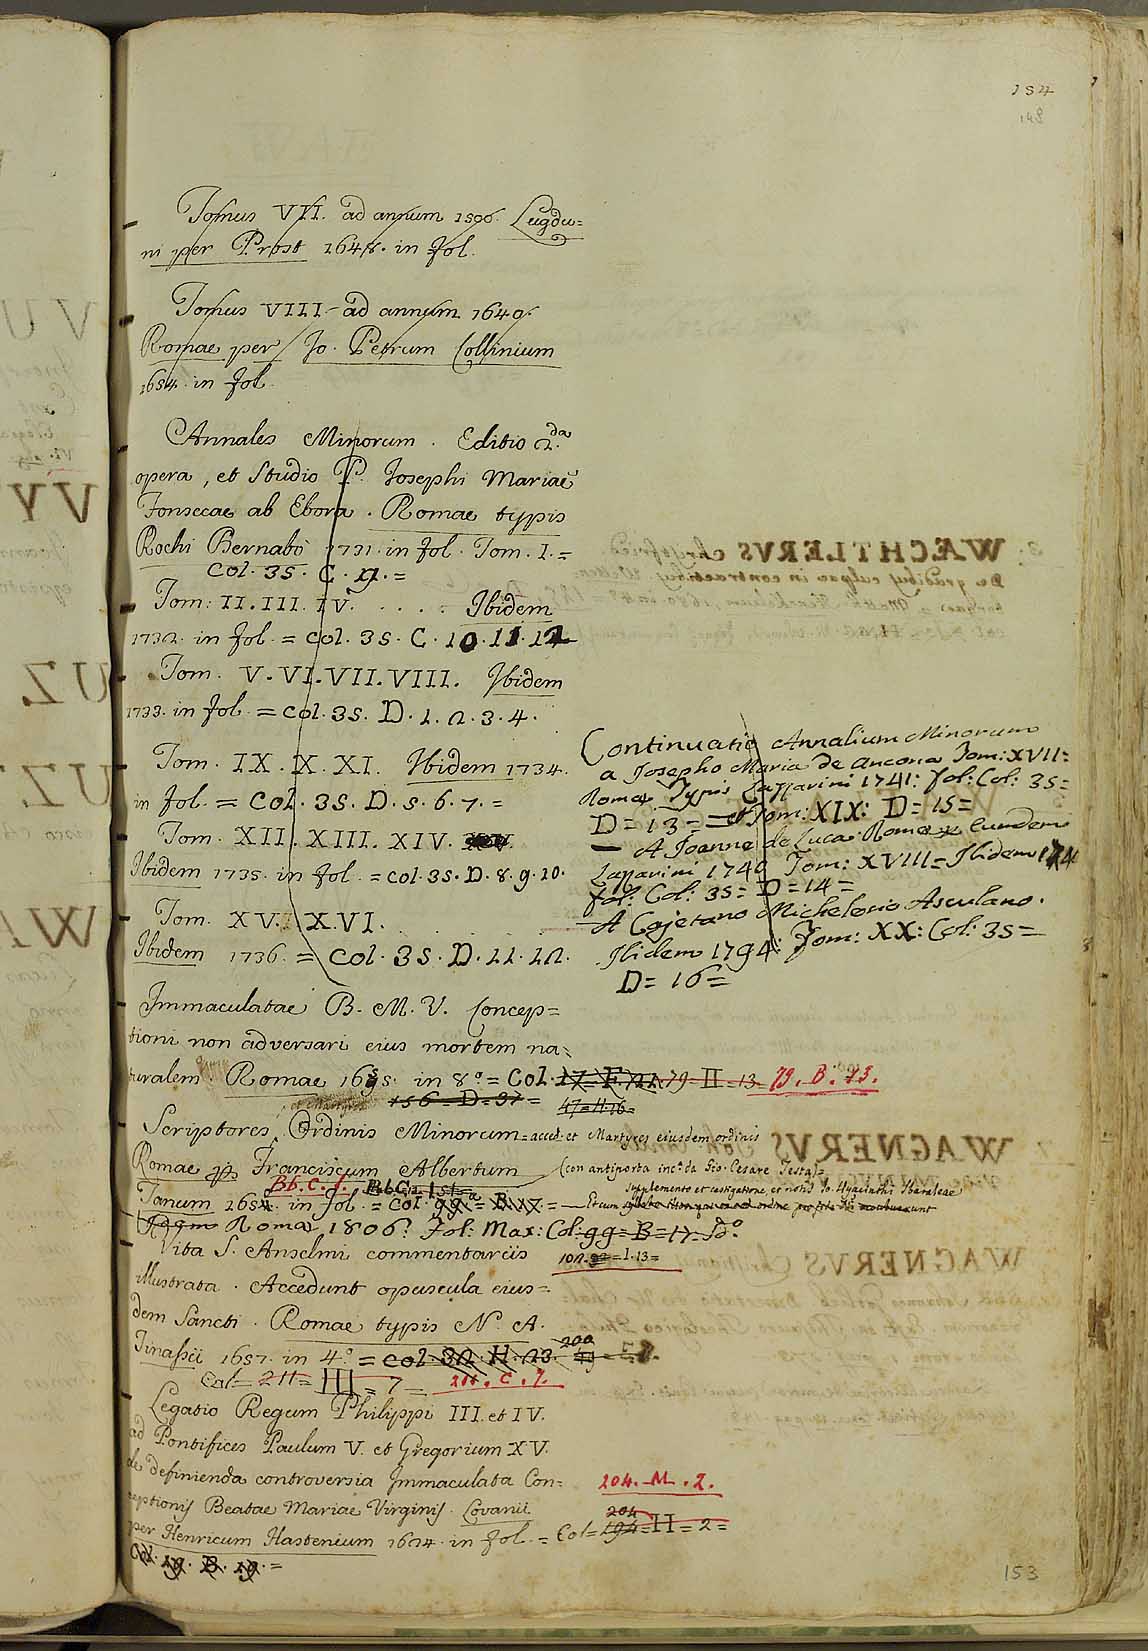 154
148
Tomus VII. ad annum 1596. Lugdu=
ni per Prost 1648. in fol.
Tomus VIII ad annum 1640.
Romae per Jo. Petrum Collinium
1654. in fol.
Annales Minorum. Editio 2.da
opera, et studio P. Josephi Mariae
Fonsecae ab Ebora. Romae typis
Rochi Bernabò 1731. in fol. Tom. I. =
Col. 35. C. 9. =
Tom: II. III. IV. . . . . Ibidem
1732. in fol. = Col. 35. C. 10. 11. 12
Tom. V. VI. VII. VIII. Ibidem
1733. in fol. = Col. 35. D. 1. 2. 3. 4.
Tom. IX. X. XI. Ibidem 1734.
in fol. = Col. 35. D. 5. 6. 7. =
Tom. XII. XIII. XIV.
Ibidem 1735. in fol. = Col. 35. D. 8. 9. 10.
Tom. XV. XVI. . . . .
Ibidem 1736. = Col. 35. D. 11. 12.
Continuatio Annalium Minorum
a Josepho Maria de Ancona Tom: XVII:
Romae Typis Zapparini 1741: fol: Col: 35=
D= 13= = et Tom: XIX: D= 15=
— A Joanne de Luca Romae eumdem
Zapparini 1740 Tom: XVIII= Ibidem 174
fol: Col: 35= D=14=
— A Cajetano Michelesio Asculano.
Ibidem 1794: Tom: XX: Col: 35=
D= 16=
Immaculatae B. M. V. Concep=
tioni non adversari eius mortem na=
turalem. Romae 1655. in 8.o = Col. 17. F. 22. 79. II. 13. 79. B. 13.
156= D= 37= 47=H.16=
Scriptores Ordinis Minorum = acced. et Martyres eiusdem ordinis
Romae per Franciscum Albertum (con antiporta inc.a da Gio. Cesare Testa)=
Bb. C. 1. Bb.C. 151=
Tanum 1654. in fol. = Col. 99 = B. 17. = — Et cum supplemento et castigatione, et notis Jo. Hyacinthi Sbaraleae
Romae 1806? Fol: Max: Col: 99= B= 17.
Vita S. Anselmi commentariis 102. = I. 13=
illustrata. Accedunt opuscula eius=
dem Sancti. Romae typis N. A.
Tinassii 1657. in 4.o = Col. 32. H. 23. 200
Col= 211= III= 7= 211. C. 7.
Legatio Regum Philippi III. et IV.
ad Pontifices Paulum V. et Gregorium XV.
de definienda controversia Immaculata Con= 204. M. 2.
ceptionis Beatae Mariae Virginis. Lovanii
per Henricum Hastenium 1624. in fol. = Col= 194 204 = H = 2=
19. B. 19. =
153
WÆCHTLERVS
WAGNERVS
WAGNERVS